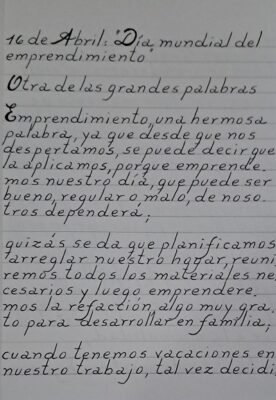 16 de Abril: "Día, mundial del
emprendimiento"
Otra de las grandes palabras
Emprendimiento, una hermosa
palabra, ya que desde que nos
despertamos, se puede decir que
la aplicamos, porque emprende.
mos nuestro día, que puede ser
bueno, regular o malo, de noso.
tros dependerá;
quizás se da que planificamos
arreglar nuestro hogar, reuni
remos todos los materiales ne.
cesarios y luego emprendere.
mos la refacción, algo muy gra.
to para desarrollar en familia;
cuando tenemos vacaciones en
nuestro trabajo, tal vez decidi.